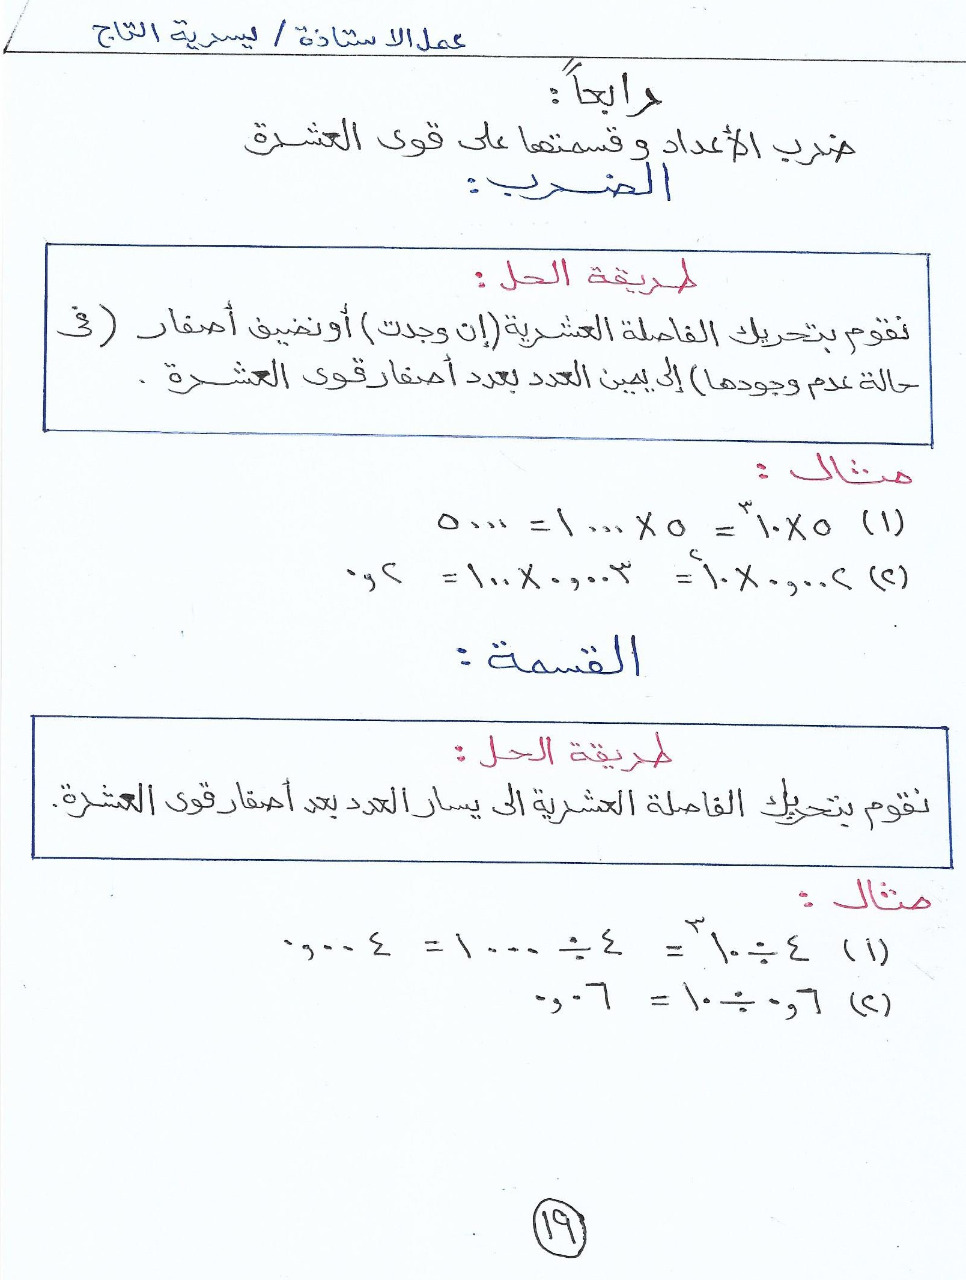 عمل الاستاذة / يسرية التاج
رابعاً:
ضرب الأعداد وقسمتها على قوى العشرة
الضرب:
طريقة الحل:
نقوم بتحريك الفاصلة العشرية (إن وجدت) أو نضيف أصفار (في
حالة عدم وجودها) إلى يمين العدد بعدد أصفار قوى العشرة .
مثال :
(١) ٥ × ١٠³ = ٥ × ١٠٠٠ = ٥٠٠٠
(٢) ٠,٠٠٢ × ١٠² = ٠,٠٠٣ × ١٠٠ = ٠,٢
القسمة :
طريقة الحل :
نقوم بتحريك الفاصلة العشرية الى يسار العدد بعد أصفار قوى العشرة.
مثال :
(١) ٤ ÷ ١٠³ = ٤ ÷ ١٠٠٠ = ٠,٠٠٤
(٢) ٠,٦ ÷ ١٠ = ٠,٠٦
١٩